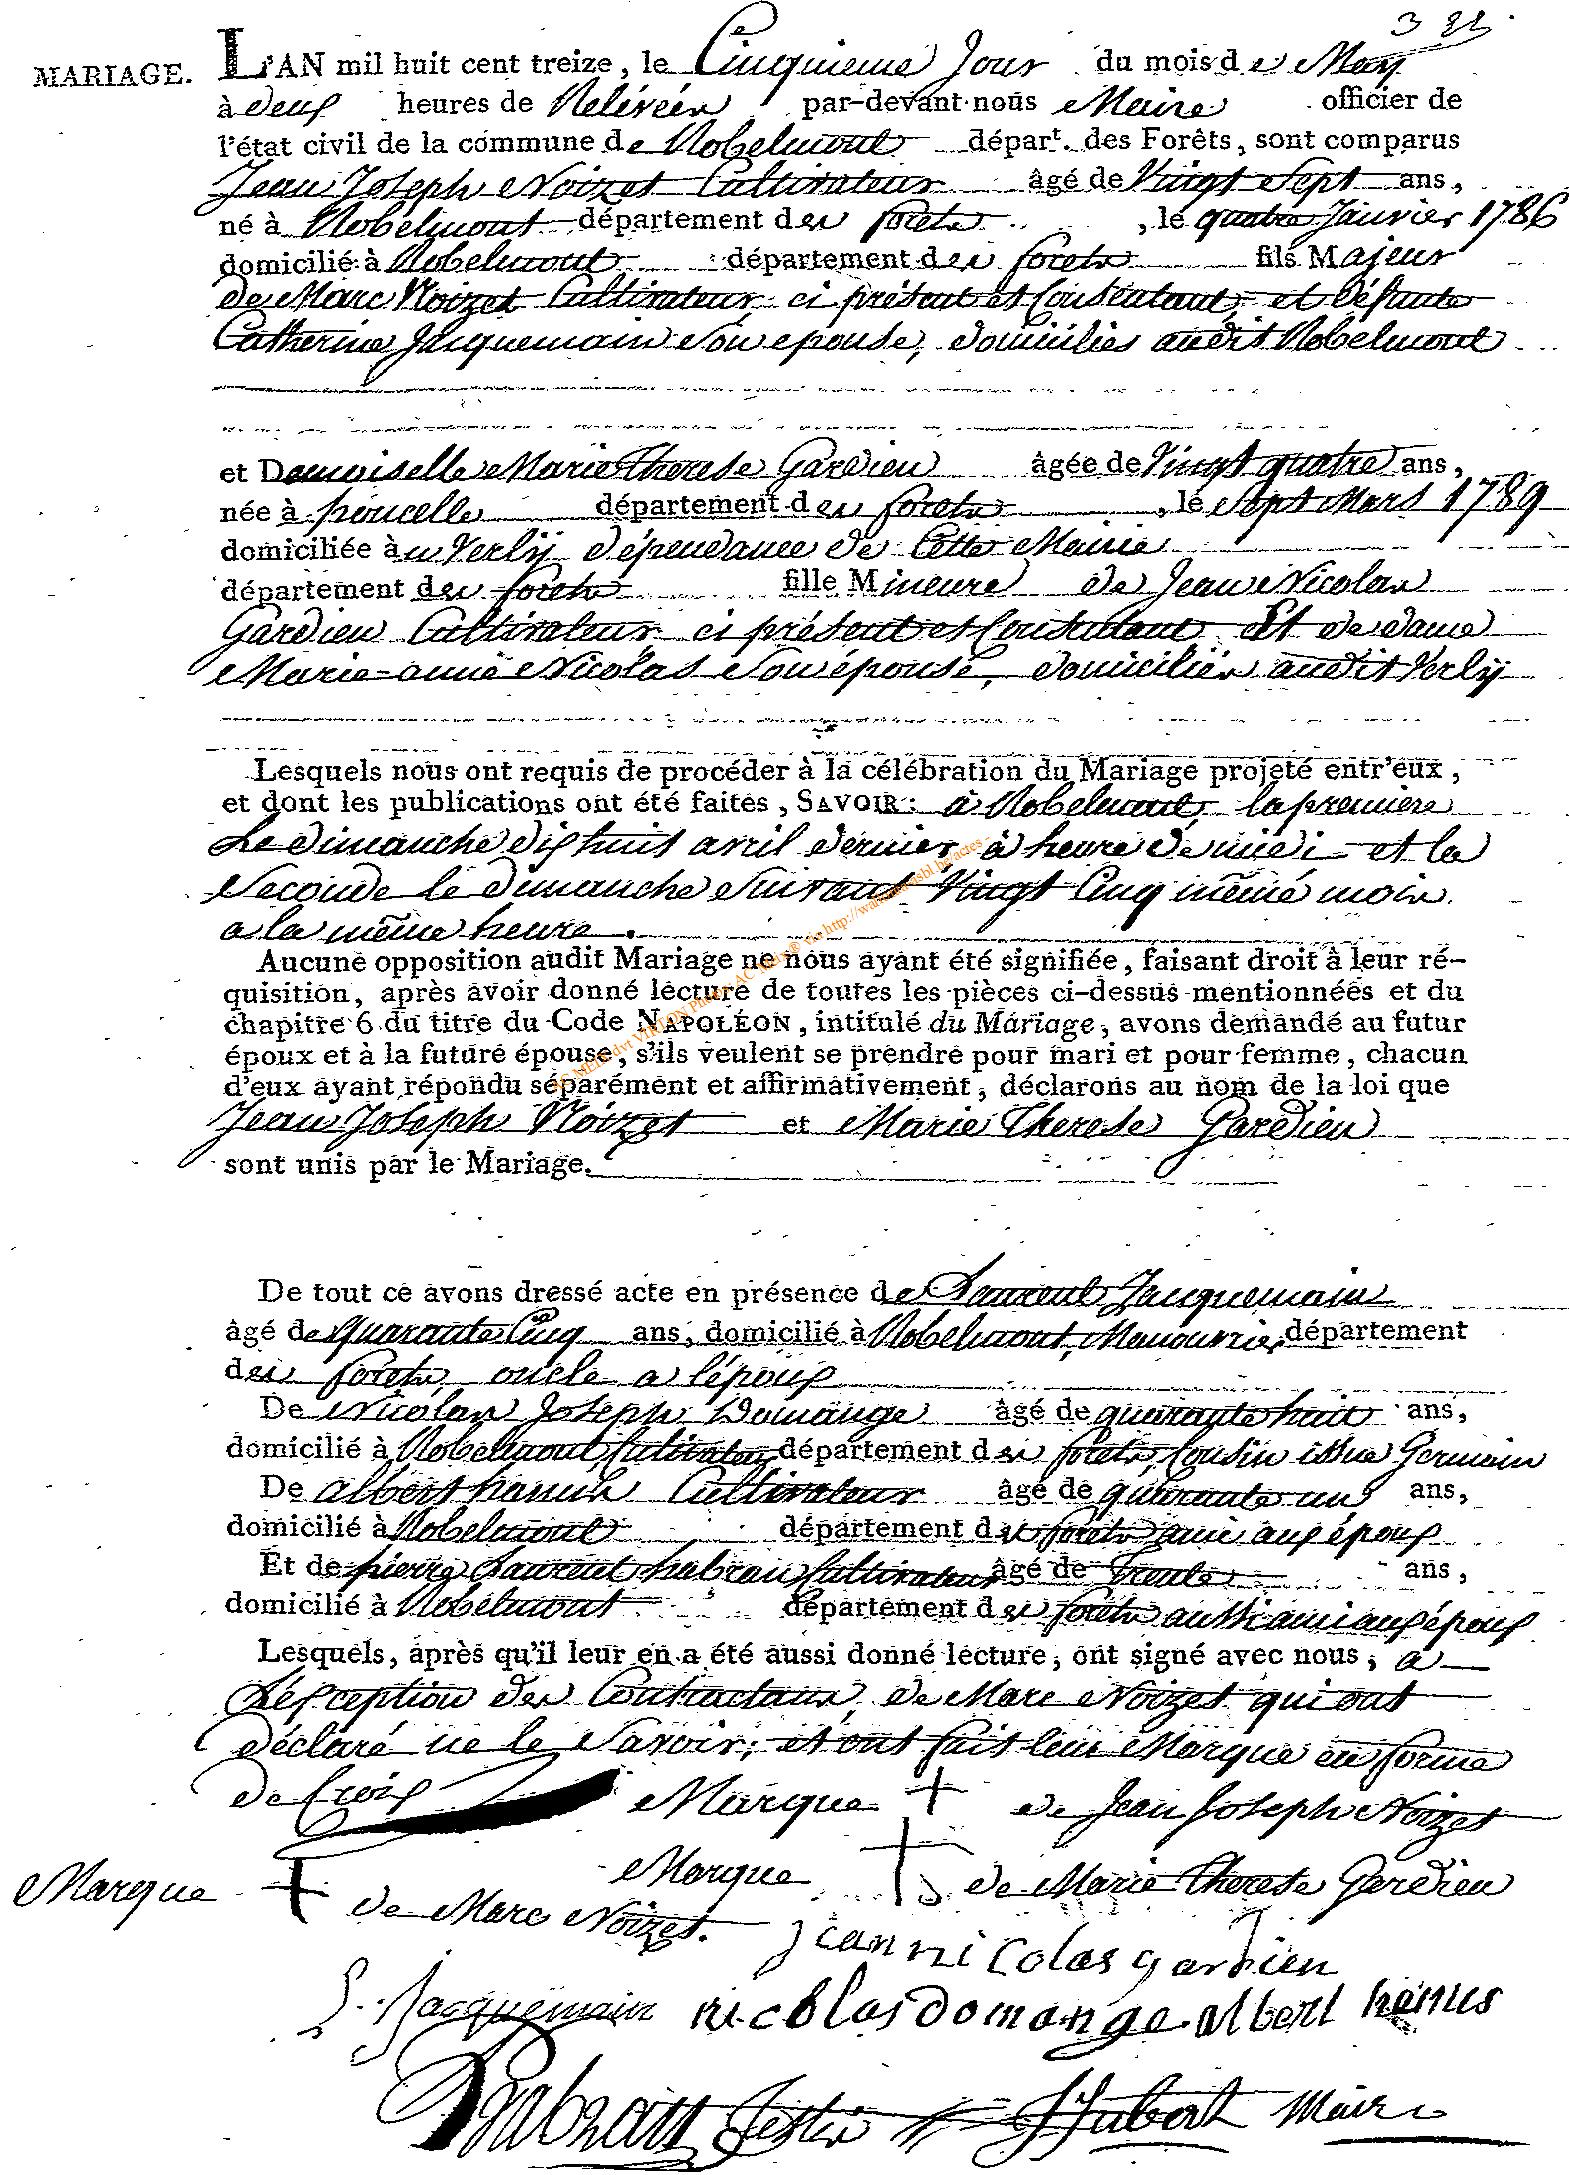 MARIAGE.
L'AN mil huit cent treize, le Cinquieme Jour du mois de May
à deux heures de Relévéé par-devant nous Maire officier de
l'état civil de la commune de Robelmont départ. des Forêts, sont comparus
Jean Joseph Noizet Cultivateur âgé de Vingt Sept ans,
né à Robelmont département des forets, le quatre Janvier 1786
domicilié à Robelmont département des forets fils Majeur
de Marc Noizet Cultivateur ci présent et Consentant, et Défunte
Catherine Jacquemain Son epouse, domiciliés audit Robelmont
et Demoiselle Marie Therese Gardien âgée de Vingt quatre ans,
née à poucelle département des forets, le Sept Mars 1789
domiciliée à u Verly dépendance de Cette Mairie
département des forets fille Mineure de Jean Nicolas
Gardien Cultivateur ci présent et Consentant Et de dame
Marie-anne Nicolas Son épouse, domiciliés audit Verly
Lesquels nous ont requis de procéder à la célébration du Mariage projeté entr'eux,
et dont les publications ont été faites, SAVOIR: à Robelmont, la premiere
Le dimanche dix huit avril dernier, à heure de midi et la
Seconde le dimanche Suivant Vingt Cinq même mois
a la même heure.
Aucune opposition audit Mariage ne nous ayant été signifiée, faisant droit à leur ré-
quisition, après avoir donné lecture de toutes les pièces ci-dessus mentionnées et du
chapitre 6 du titre du Code NAPOLÉON, intitulé du Mariage, avons demandé au futur
époux et à la future épouse, s'ils veulent se prendre pour mari et pour femme, chacun
d'eux ayant répondu séparément et affirmativement, déclarons au nom de la loi que
Jean Joseph Noizet et Marie Therese Gardien
sont unis par le Mariage.
De tout ce avons dressé acte en présence de Laurent Jacquemain
âgé de quarante Cinq ans, domicilié à Robelmont, Manouvrier département
des forets, oncle a lépoux
De Nicolas Joseph Domange âgé de quarante huit ans,
domicilié à Robelmont, Cultivateur département des forets, Cousin issue Germain
De albert hanus Cultivateur âgé de quarante un ans,
domicilié à Robelmont département des forets ami aux époux
Et de pierre Laurent habran Cultivateur âgé de Trente ans,
domicilié à Robelmont département des forets aussi ami aux époux
Lesquels, après qu'il leur en a été aussi donné lecture, ont signé avec nous, a
L'exception des Contractans, de Marc Noizet qui ont
déclaré ne le Savoir; et ont fait leur Marque en forme
de Croix Marque + de Jean Joseph Noizet
Marque + de Marie Therese Gardien
Marque + de Marc Noizet.
jean nicolas gardien
L. Jacquemain nicolas domange albert hanus
habran Hubert Maire